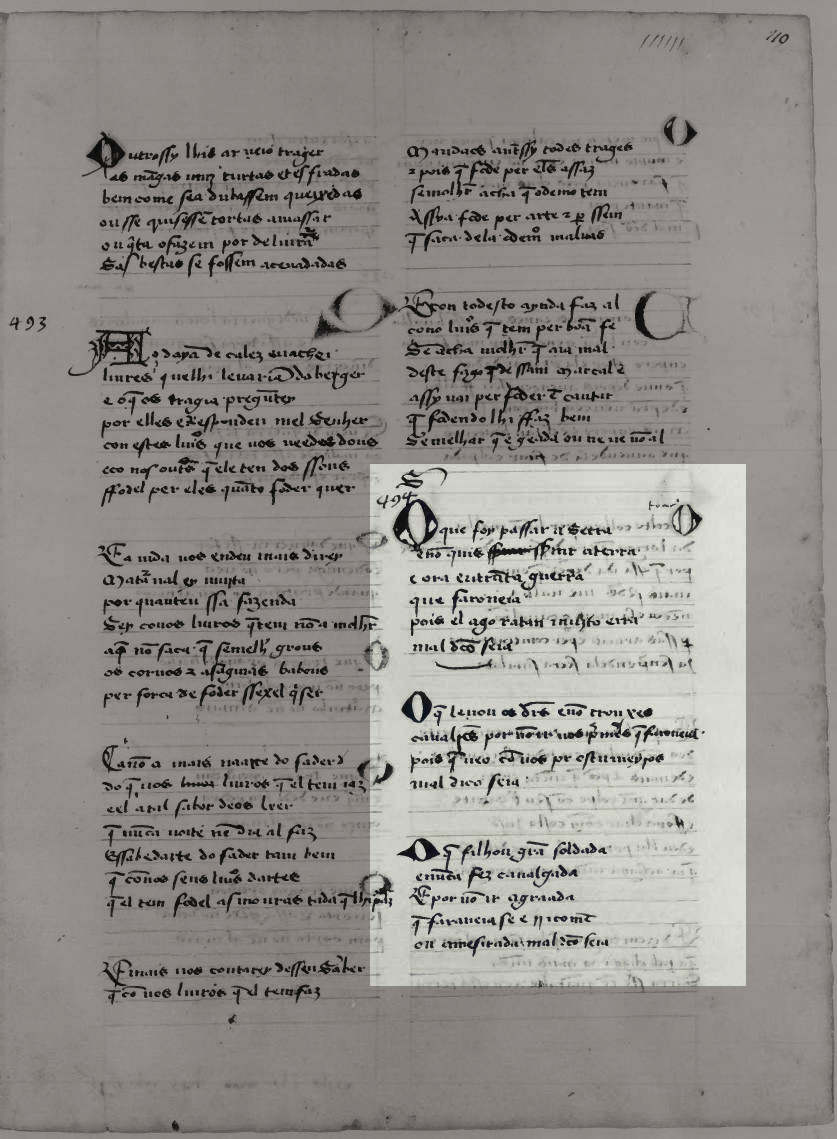 110
Outrossy lhis ar ueio trager
as mãgas mui turtas et esfiadas
bem come sea dubassem queyxadas
ou sse quisessẽ tortas amassar
ou q̃ta o fazem por deliurar
Sas bestas se fossem aceuadadas
493
Ao dayã de calez eu achei
liures quelhi leuariã do berger
e o q̃ os tragia pregũtey
por elles e Respondeu mel Senher
con estes liuros que uos ueedes dous
e co nos outros q̃ ele ten dos ssous
ffodel per eles quãto foder quer
E a inda uos endeu mais direy
por quanteu ssa fazenda
Sey conos liuros q̃ tem nõ a molher
a q̃ nõ faça q̃ semelhẽ grous
os coruos e as aguias babous
per força de foder ssexel q̃ser
Ca nõ a mais na arte do fader
do q̃ nos liuros q̃ el tem iaz
e el a tal sabor deos lrer
q̃ nũca noite nẽ dia al faz
Essabedarte do fader tam bem
q̃ cõnos seus liuros dartes
q̃ el tem fodel as mouras cada q̃ lhi praz
E mais uos contarey desseu Saber
q̃ cõ uos liuros q̃ el tem faz
Mandaas antessy todas trager
e pois q̃ fode per eles assaz
se molher acha q̃ o demo tem
Assya fode per arte e per ssem
q̃ saca dela o demo maluas
E con todesto aynda faz al
cono liuros q̃ tem per boã fe
Se acha molher q̃ aia mal
deste fogo q̃ de ssam Marcal e
assy uai per foder encantar
q̃ fodendo lhi ffaz bem
Semelhar q̃ e geada ou neue nõ al
494
O que foy passar a Serra
e nõ quis seruir a terra
e ora entrãt a guerra
que faroneia
pois el agora tan muyto erra
mal dicto seia
O q̃ leuou os drs̃ e nõ trouxes
caualeyros por nõ ir nos primeyros q̃ faroneia
pois q̃ ueo cõ nos postumeyros
mal dico seia
O q̃ filhou grã soldada
e nũca fez caualgada
E por nõ ir a graada
q̃ faroneia se e rricomẽ
ou a mesnada mal dcõ seia